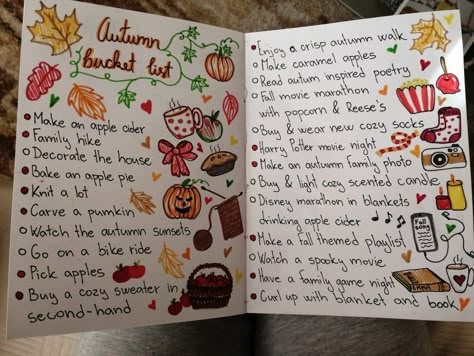 Autumn
bucket list
Make an apple cider
Family hike
Decorate the house
Bake an apple pie
Knit a lot
Carve a pumkin
Watch the autumn sunsets
Go on a bike ride
Pick apples
Buy a cozy sweater in
second-hand
Enjoy a crisp autumn walk
Make caramel apples
Read autum inspired poetry
Fall movie marathon
with popcorn & Reese's
Buy & wear new cozy socks
Harry Potter movie night
Make an autumn family photo
Buy & light cozy scented candle
Disney marathon in blankets
drinking apple cider
Make a fall themed playlist
Watch a spooky movie
Have a family game night
Curl up with blanket and book
Fall
song